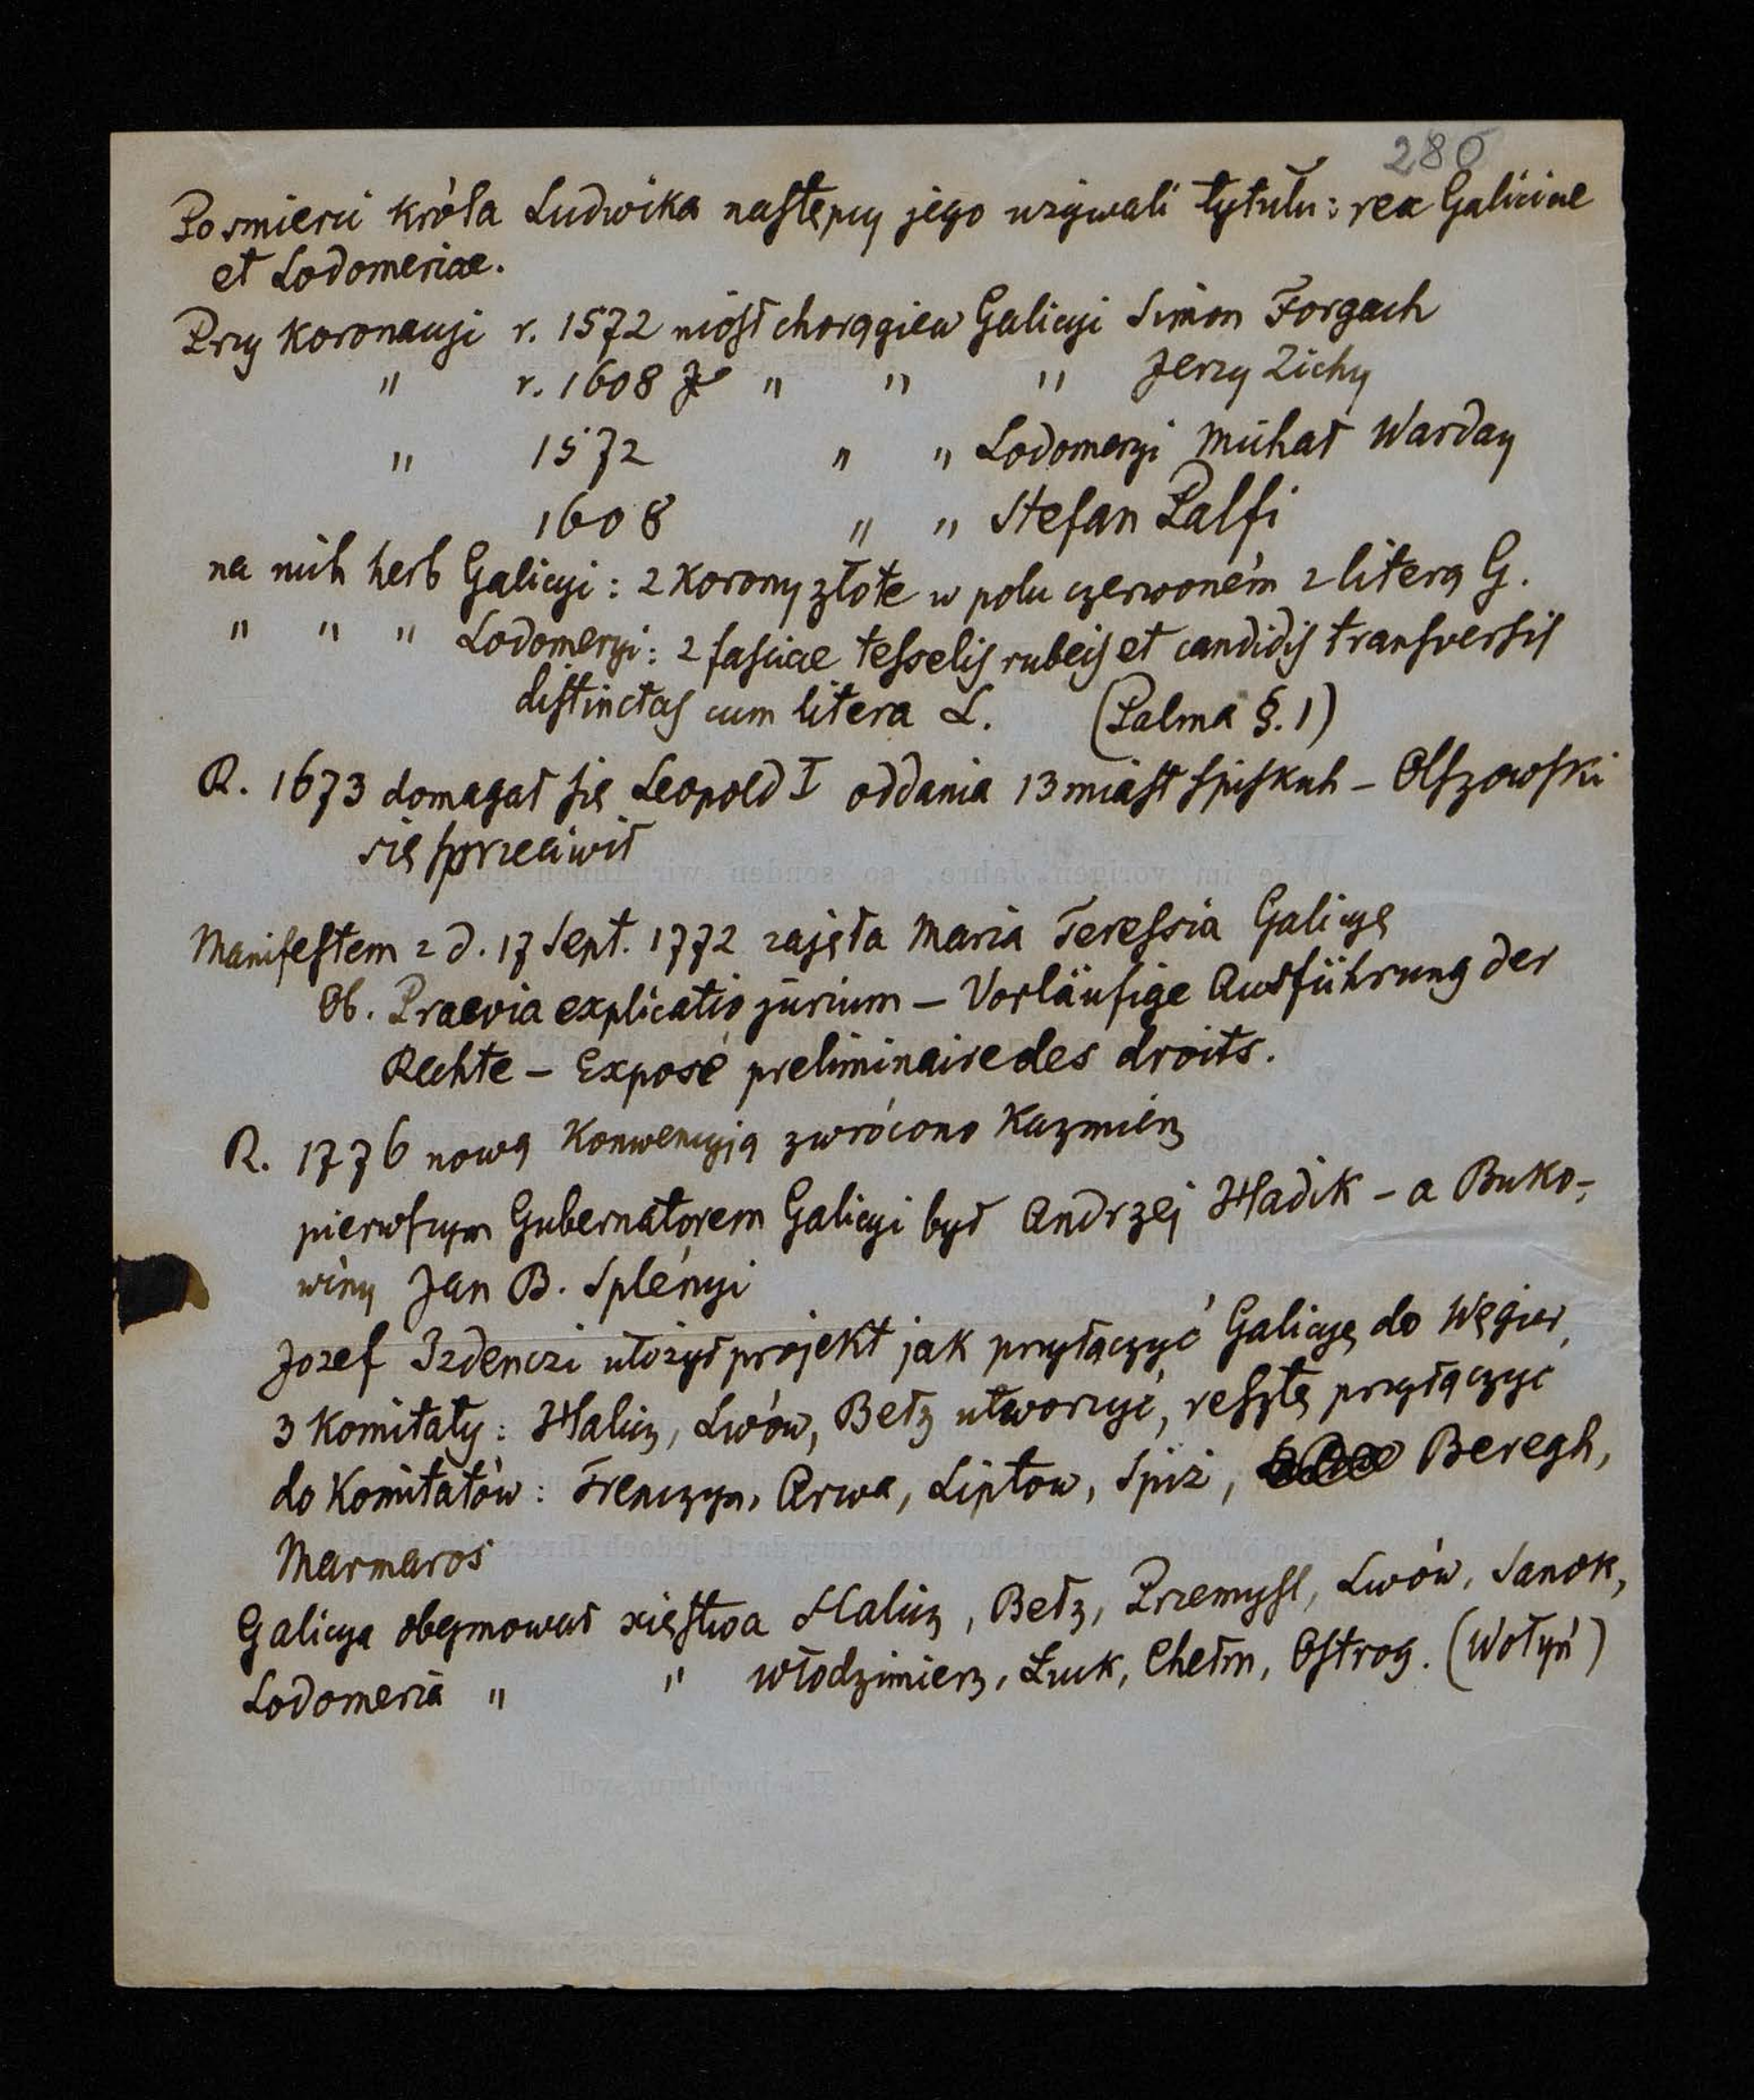 280
Po smierci króla Ludwika następcy jego używali tytułu: rex Galiciae
et Lodomeriae.
Przy koronacyi r. 1572 niósł chorągiew Galicyi Simon Forgach
" r. 1608 " " " Jerzy Zichy
" 1572 " " Lodomeryi Michał Warday
1608 " " Stefan Palfi
na nich herb Galicyi: 2 korony złote w polu czerwoném z literą G.
" " " Lodomeryi: 2 fasciae tesselis rubeis et candidis transversis
distinctas cum litera L. (Palma §. 1)
R. 1673 domagał się Leopold I oddania 13 miast spiskich – Olszowski
się sprzeciwił
Manifestem z d. 17 Sept. 1772 zajęła Maria Teressia Galicyę
Ob. Praevia explicatio jurium – Vorläufige Ausführung der
Rechte – Exposé preliminaire des droits.
R. 1776 nową konwencyją zwrócono Kazmierz
pierwszym Gubernatorem Galicyi był Andrzej Hadik – a Buko-
winy Jan B. Splényi
Jozef Izdenczi ułożył projekt jak przyłączyć Galicyę do Węgier,
3 Komitaty: Halicz, Lwów, Bełz utworzyć, resztę przyłączyć
do Komitatów: Trenczyn, Arwa, Liptow, Spiż, Beregh,
Marmaros
Galicya obejmował xięstwa Halicz, Bełz, Przemysl, Lwów, Sanok,
Lodomeria " " Włodzimierz, Łuck, Chełm, Ostrog. (Wołyń)